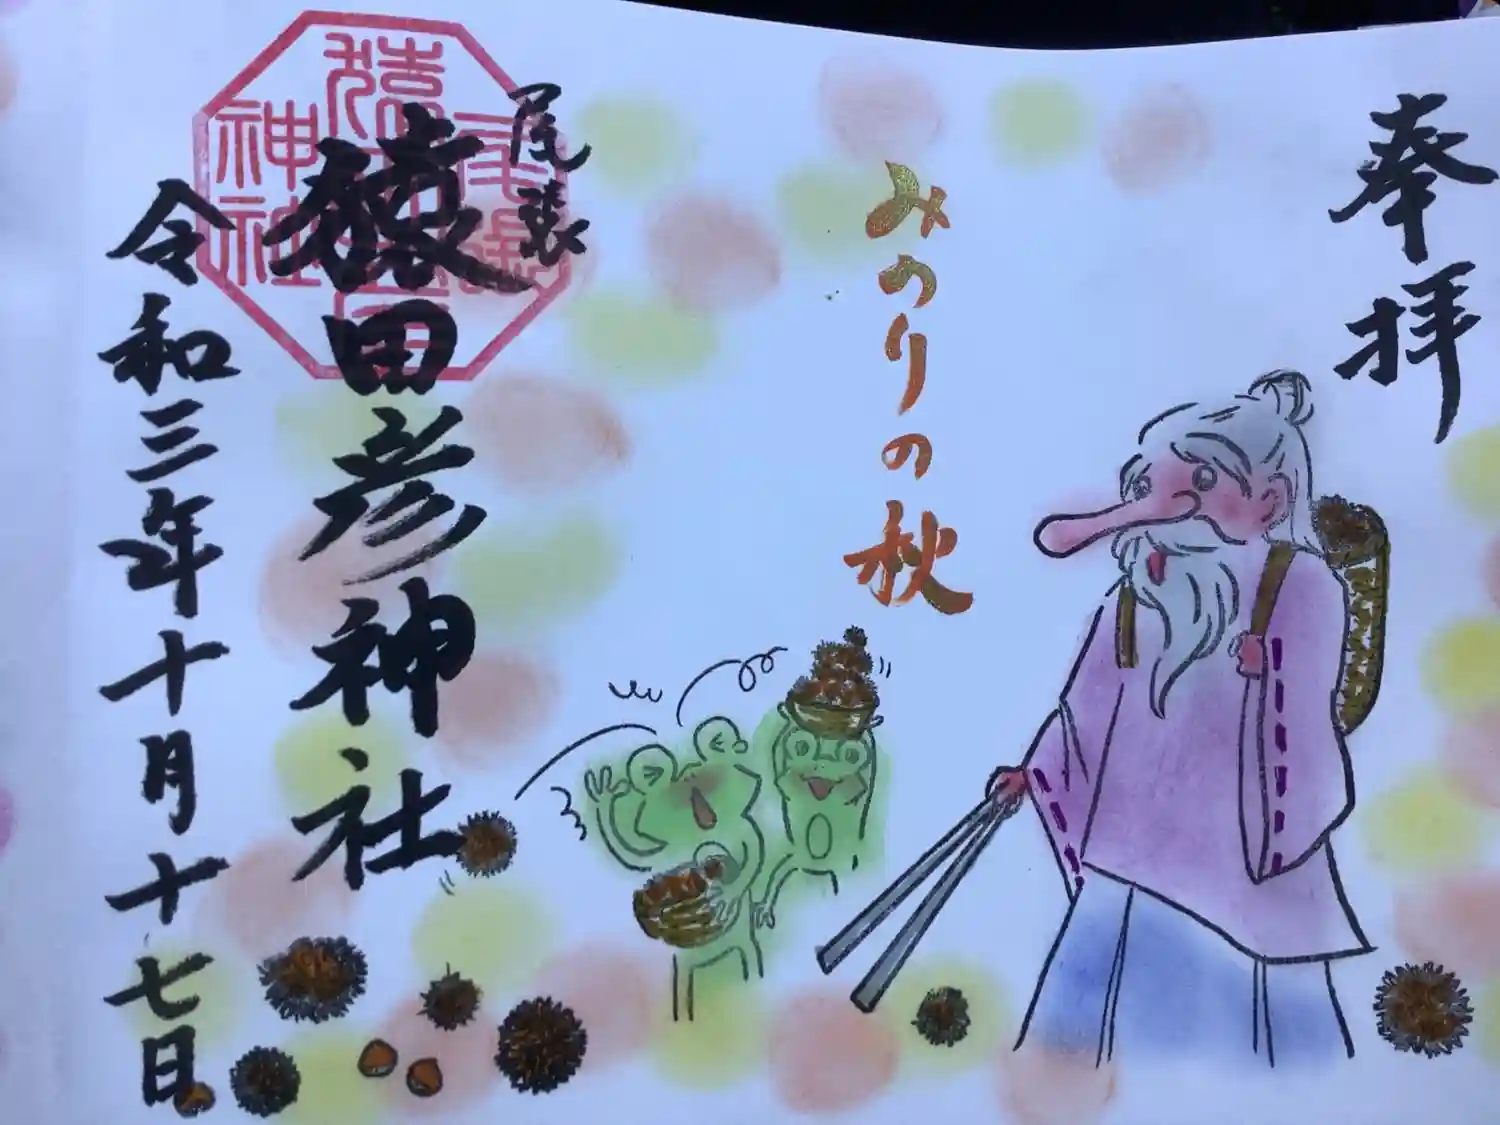 奉拝
みのりの秋
尾張
猿田彦神社
令和三年十月十七日